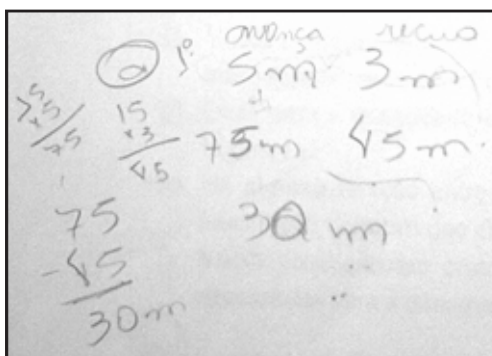 avança recuo
a) 1º 5m 3m
15
x5
75
15
x3
45
75m 45m
75
-45
30m
30m